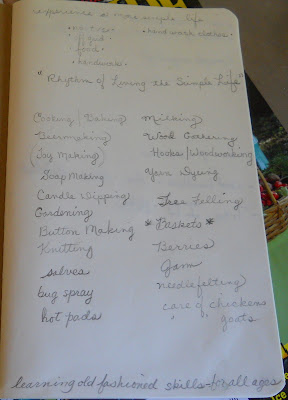 experience a more simple life
food
hardwork
hand work clothes
"Rhythm of Living the Simple Life"
Cooking / Baking
Beermaking
(Toy Making)
Soap Making
Candle Dipping
Gardening
Button Making
Knitting
salves
bug spray
hot pads
Milking
Wood Gathering
Hooks/Woodworking
Yarn Dyeing
Tree Felling
*Baskets*
Berries
Jam
needlefelting
care of chickens
" " goats
learning old fashioned skills-for all ages